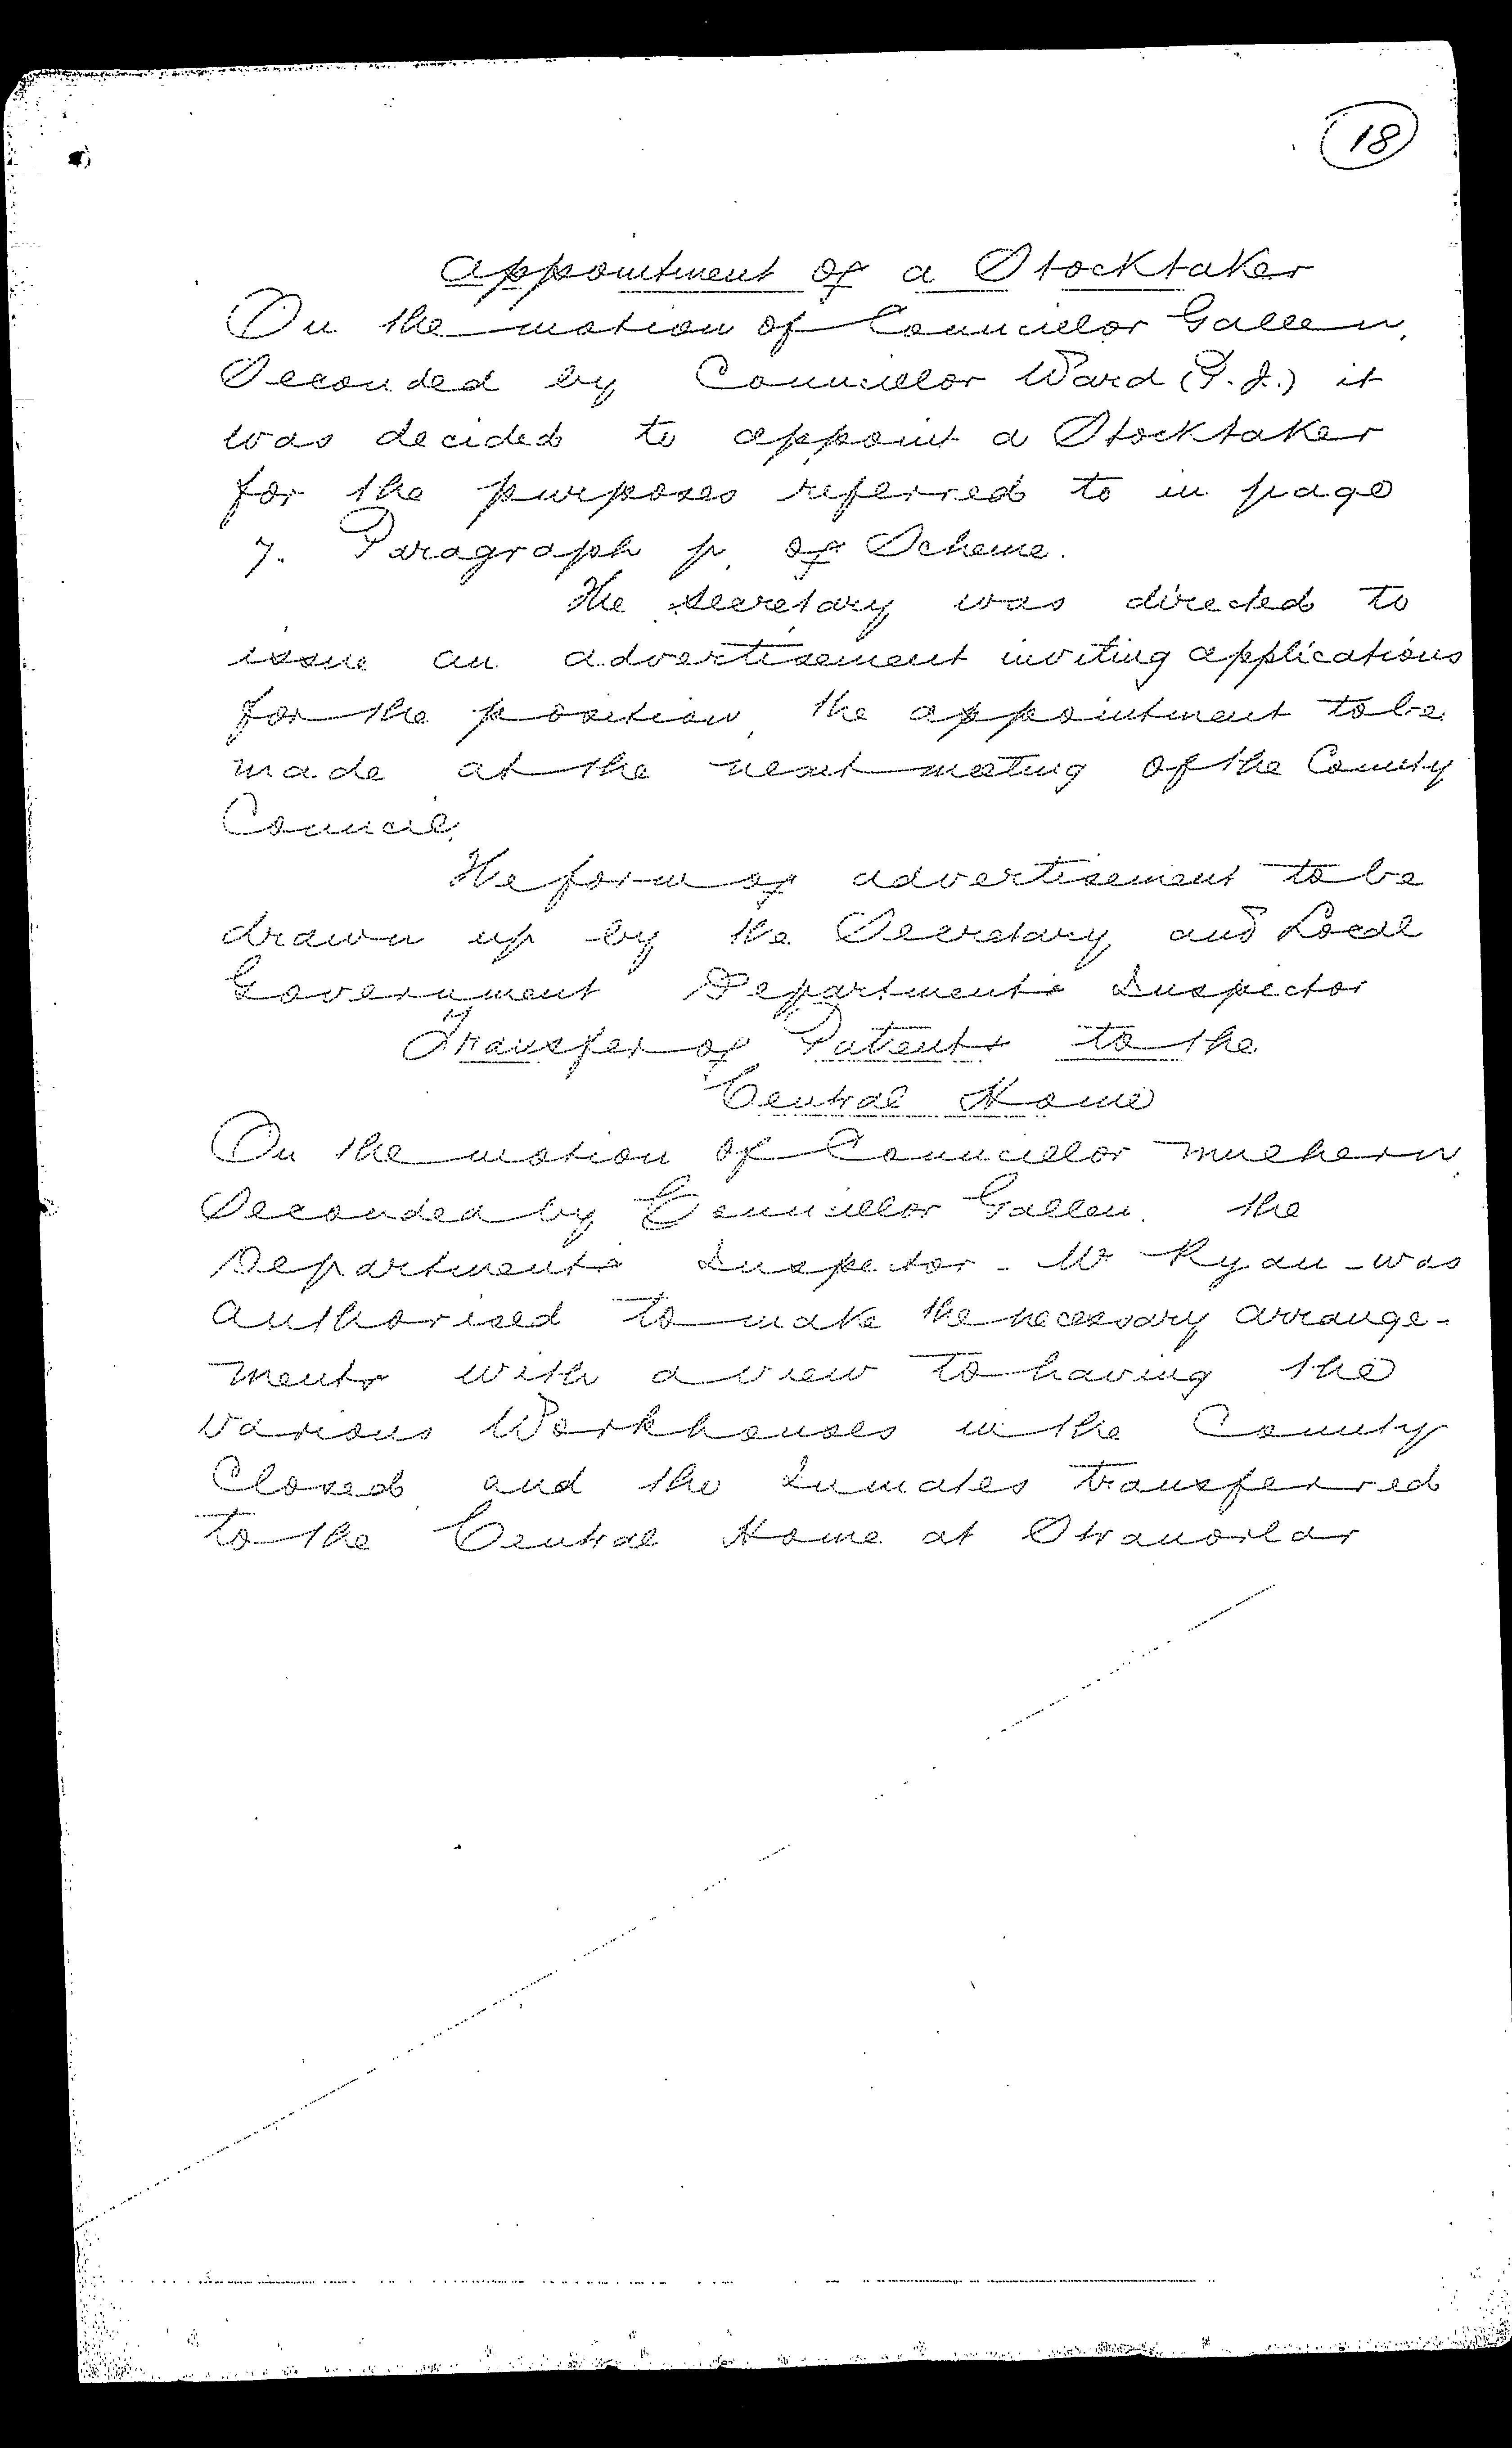 18
Appointment of a Stocktaker
On the motion of Councillor Gallen,
Seconded by Councillor Ward (P.J.) it
was decided to appoint a Stocktaker
for the purposes referred to in page
7. Paragraph p. of Scheme.
The Secretary was directed to
issue an advertisement inviting applications
for the position, the appointment to be
made at the next meeting of the County
Council.
The form of advertisement to be
drawn up by the Secretary and Local
Government Departments Inspector
Transfer of Patients to the
Central Home
On the motion of Councillor Mulhern,
Seconded by Councillor Gallen. the
Departments Inspector - Mr Ryan - was
authorised to make the necessary arrange-
ments with a view to having the
various Workhouses in the County
Closed, and the Inmates transferred
to the Central Home at Stranorlar